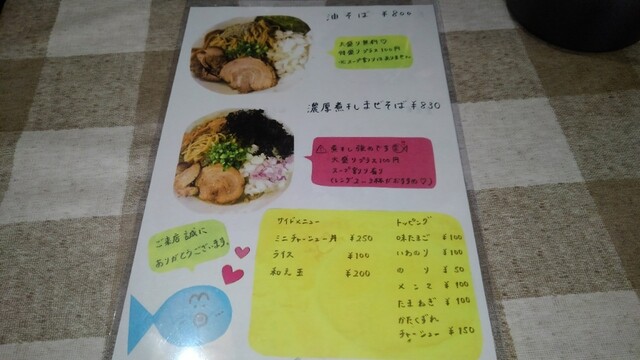 油そば ¥800
大盛り無料♡
特盛りプラス100円
※スープ割りはありません
濃厚煮干しまぜそば ¥830
大盛りプラス100円
スープ割り有り
サイドメニュー
ミニチャーシュー丼 ¥250
ライス ¥100
和え玉 ¥200
トッピング
味たまご ¥100
いわのり ¥100
のり ¥50
メンマ ¥100
たまねぎ ¥100
かたくずれ
チャーシュー ¥150
ご来店誠に
ありがとうございます。